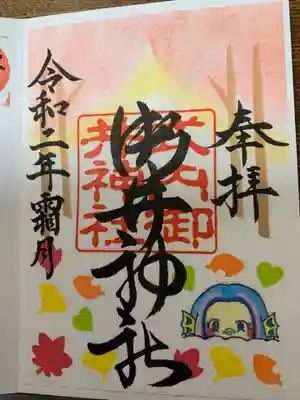 奉拝
御井神社
式内御
井神社
令和二年霜月